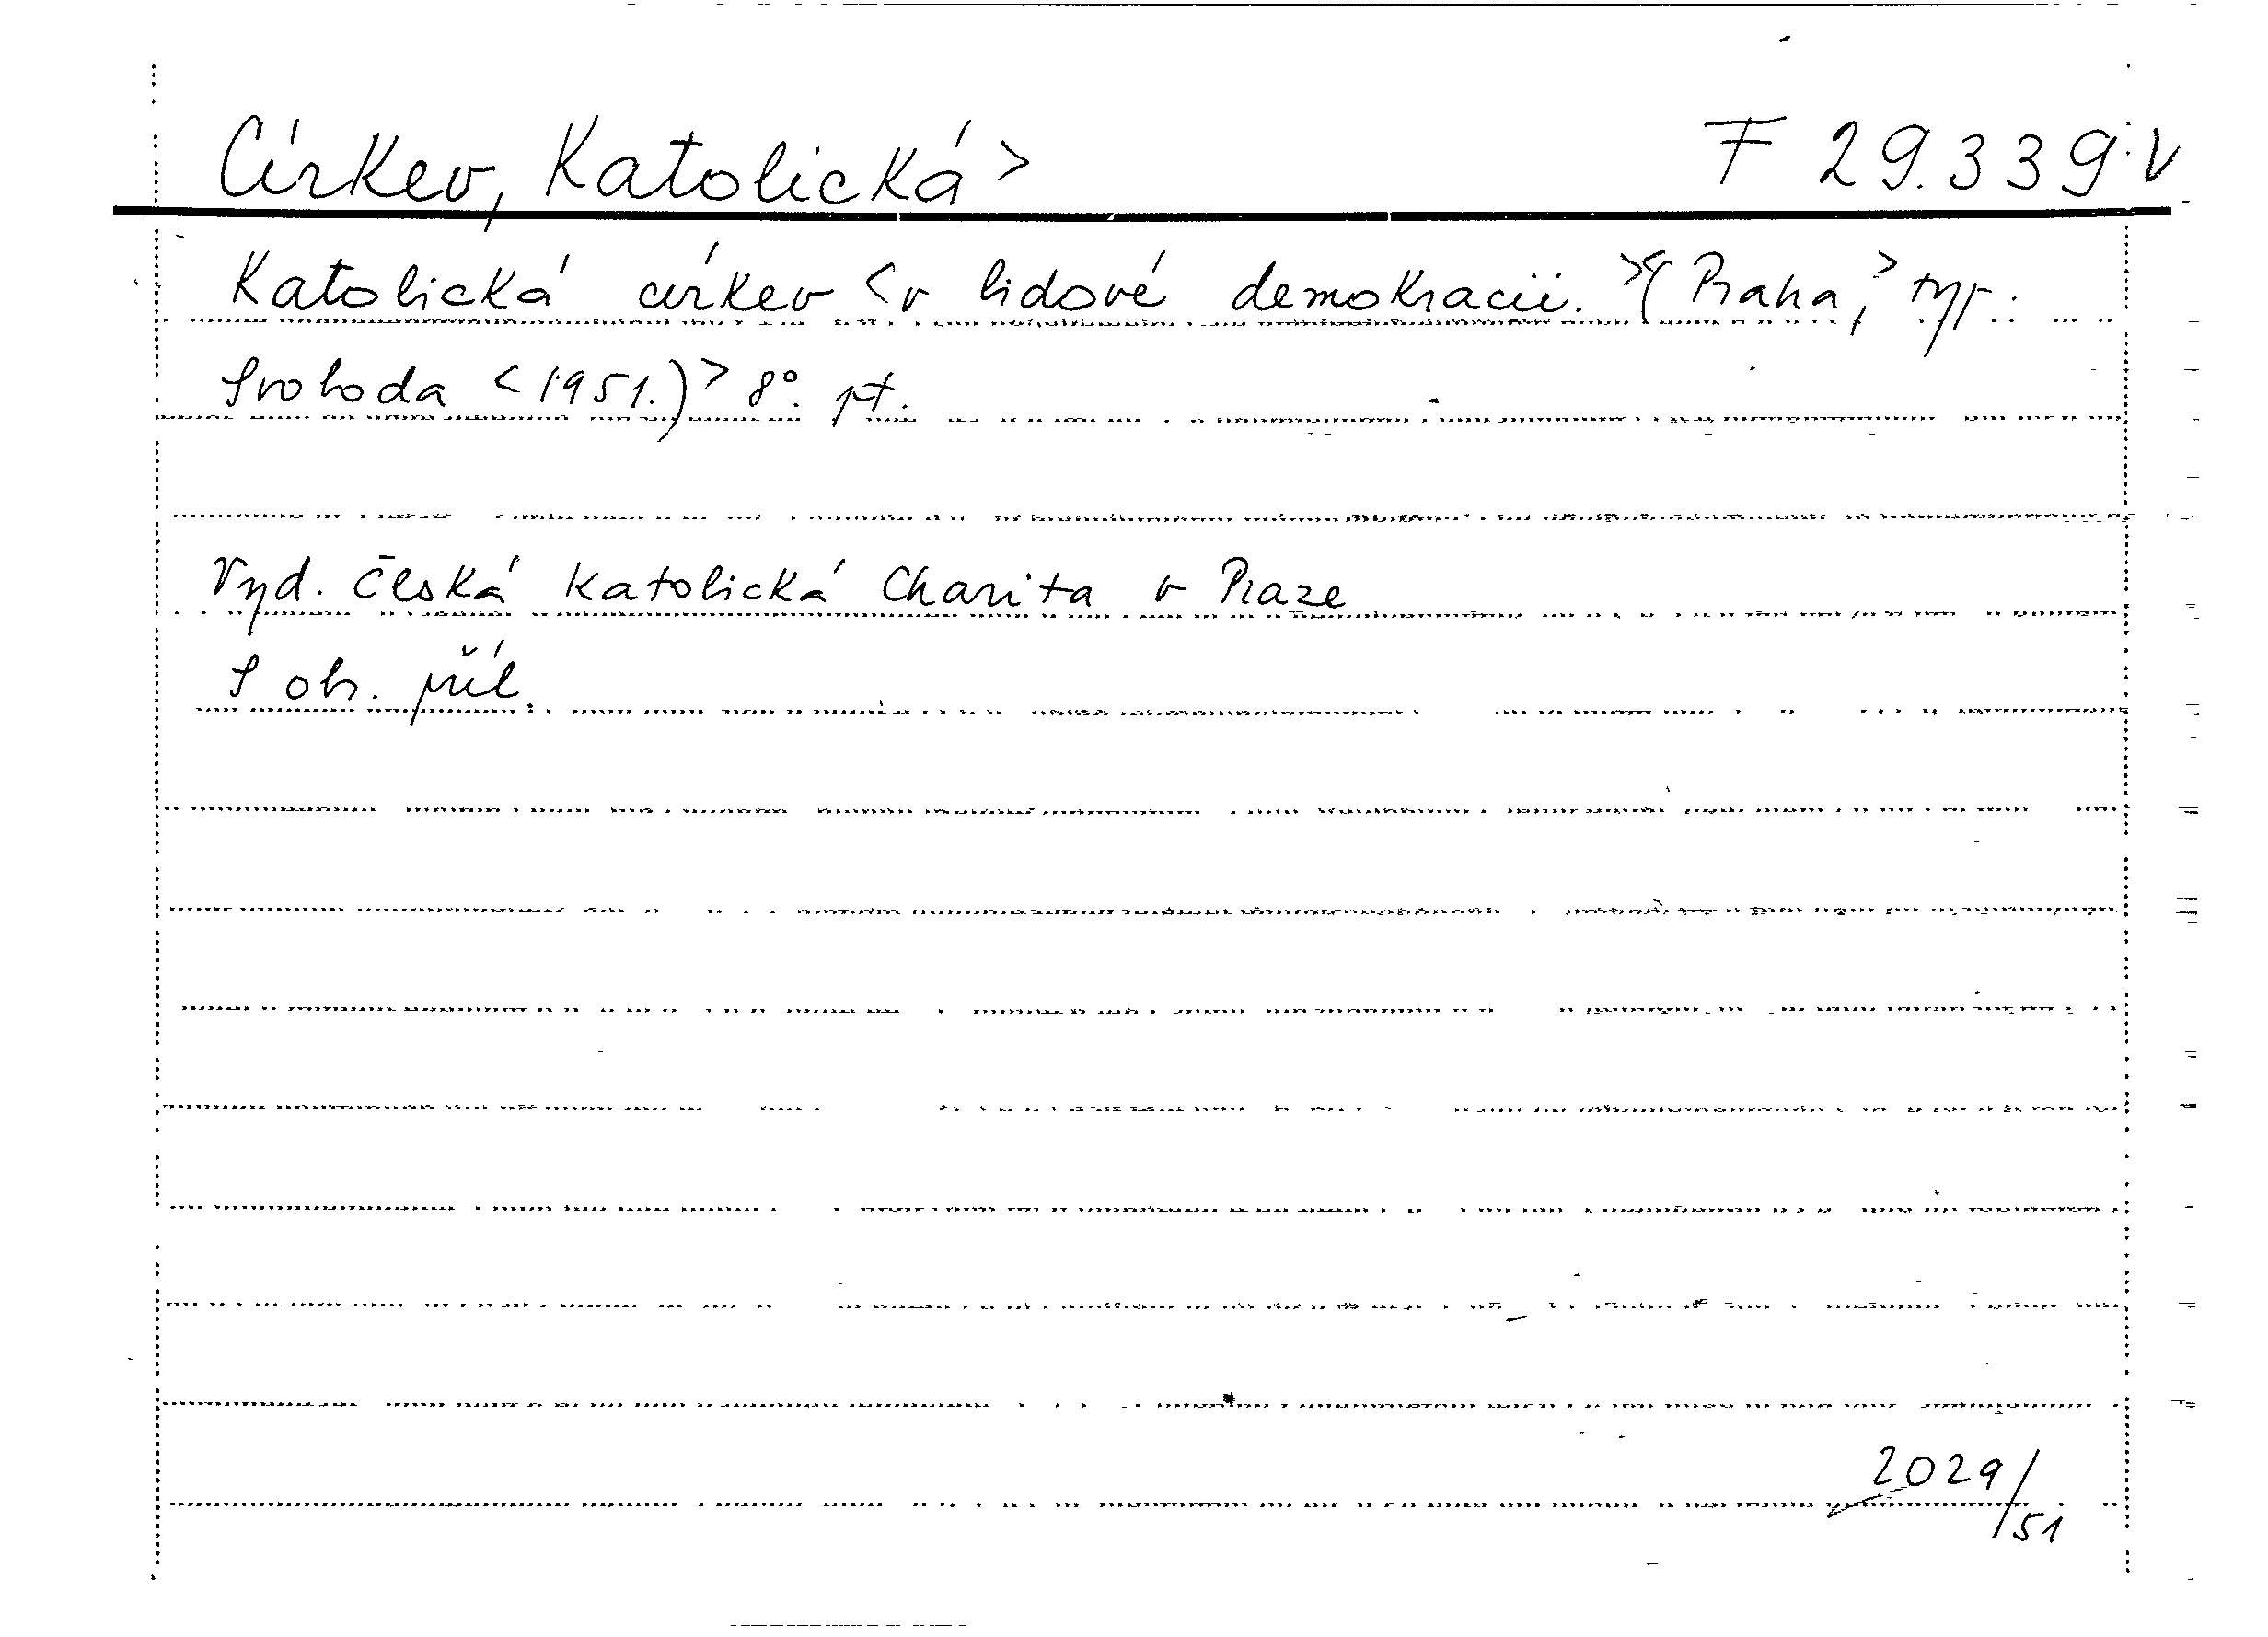 Církev, Katolická> F 29.339.V
Katolická církev <v lidové demokracii.>(Praha,> typ.
Svoboda <1951.)> 8°. pt.
Vyd. Česká Katolická Charita v Praze
S obr. příl.
2029/51